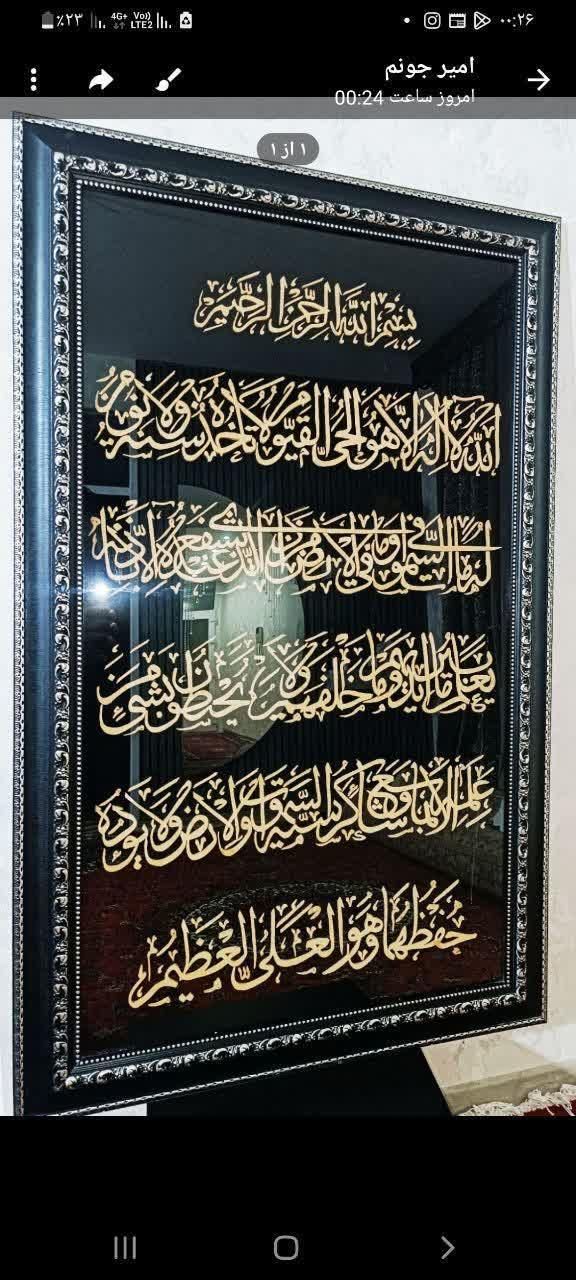 ٪۲۳ 4G+ Vo)) LTE2 ۰۰:۲۶
امیر جونم
امروز ساعت 00:24
۱ از ۱
بسم الله الرحمن الرحیم
الله لا اله الا هو الحی القیوم لا تاخذه سنة ولا نوم
له ما فی السموات وما فی الارض من ذا الذی یشفع عنده الا باذنه
یعلم ما بین ایدیهم وما خلفهم ولا یحیطون بشیء من
علمه الا بما شاء وسع کرسیه السموات والارض ولا یؤده
حفظهما وهو العلی العظیم